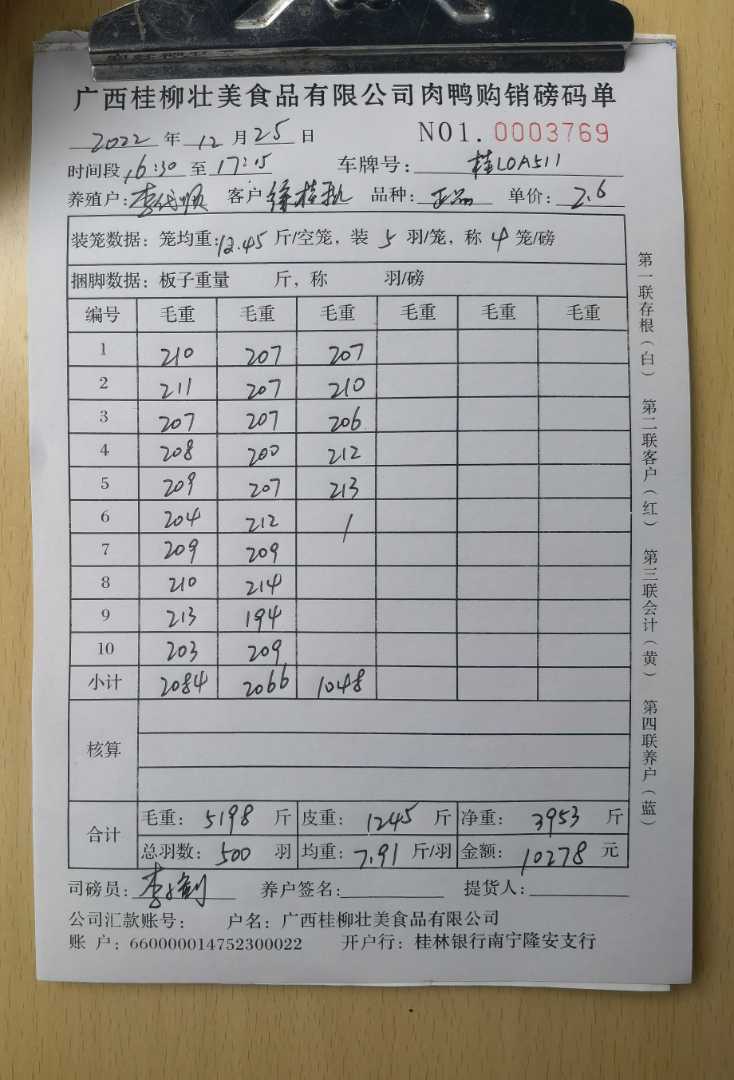 广西桂柳壮美食品有限公司肉鸭购销磅码单
2022 年 12 月 25 日 NO1. 0003769
时间段 16:30 至 17:15 车牌号: 桂LOA511
养殖户: 李 客户 徐桂 品种: 正品 单价: 2.6
装笼数据: 笼均重: 12.45 斤/空笼, 装 5 羽/笼, 称 4 笼/磅
捆脚数据: 板子重量 斤, 称 羽/磅
编号 毛重 毛重 毛重 毛重 毛重 毛重
1 210 207 207
2 211 207 210
3 207 207 206
4 208 200 212
5 209 207 213
6 204 212 /
7 209 209
8 210 214
9 213 194
10 203 209
小计 2084 2066 1048
核算
合计
毛重: 5198 斤 皮重: 1245 斤 净重: 3953 斤
总羽数: 500 羽 均重: 7.91 斤/羽 金额: 10278 元
司磅员: 李 养户签名: 提货人:
公司汇款账号: 户名: 广西桂柳壮美食品有限公司
账 户: 660000014752300022 开户行: 桂林银行南宁隆安支行
第一联存根(白) 第二联客户(红) 第三联会计(黄) 第四联养户(蓝)